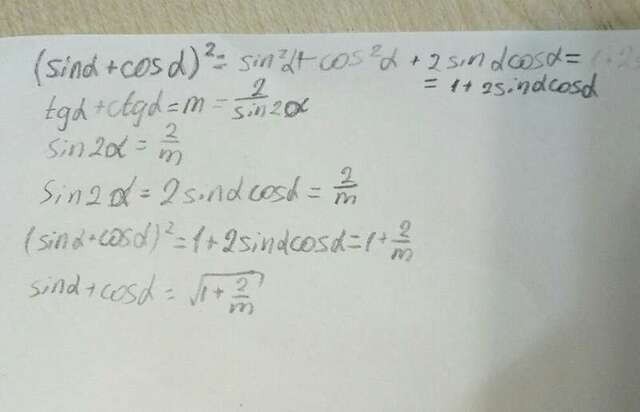 (sinα+cosα)²= sin²α+cos²α + 2sinαcosα=
= 1+2sinαcosα
tgα+ctgα=m=2/sin2α
sin2α=2/m
Sin2α=2sinαcosα=2/m
(sinα+cosα)²=1+2sinαcosα=1+2/m
sinα+cosα=√(1+2/m)